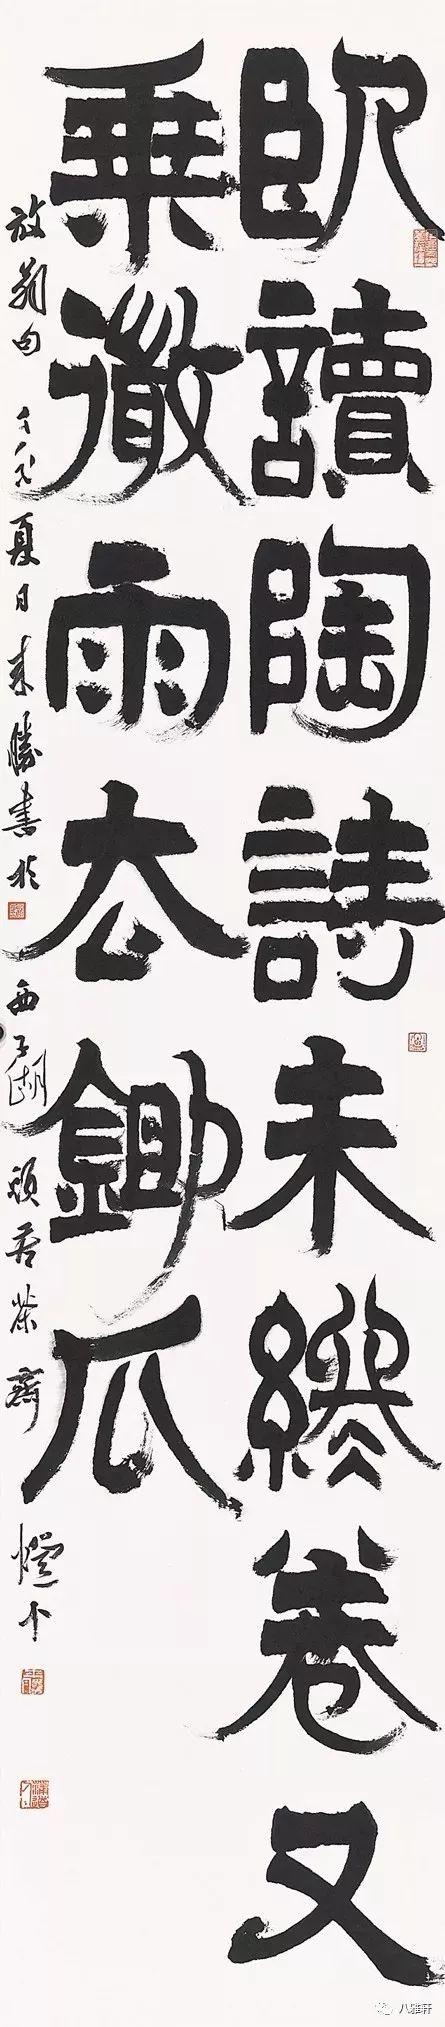 臥讀陶詩未終卷又
乘微雨去鋤瓜
放翁句 夏日来勝書於西子湖頭苦茶齋燈下
八雅轩